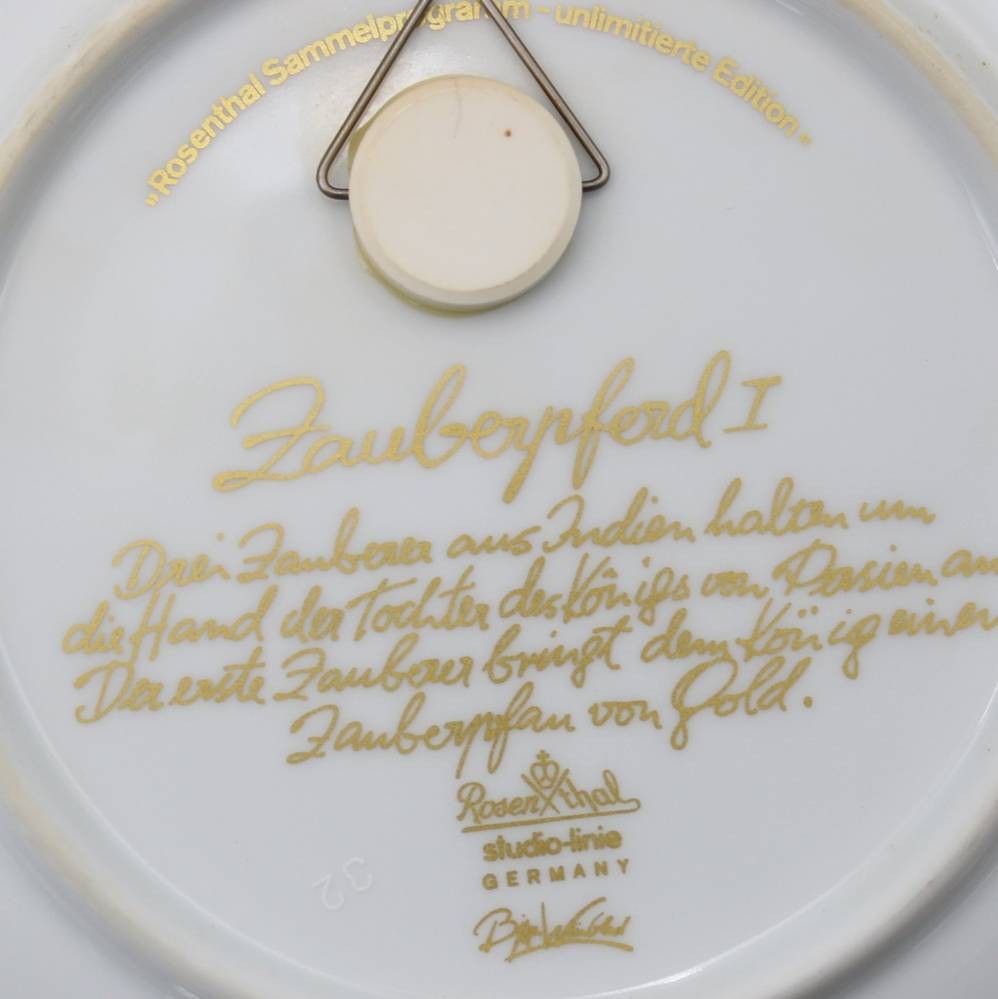 „Rosenthal Sammelprogramm - unlimitierte Edition"
Zauberpferd I
Drei Zauberer aus Indien halten um
die Hand der Tochter des Königs von Persien an
Der erste Zauberer bringt dem König einen
Zauberpfau von Gold.
Rosenthal
studio-linie
GERMANY
Bjørn Wiinblad
32